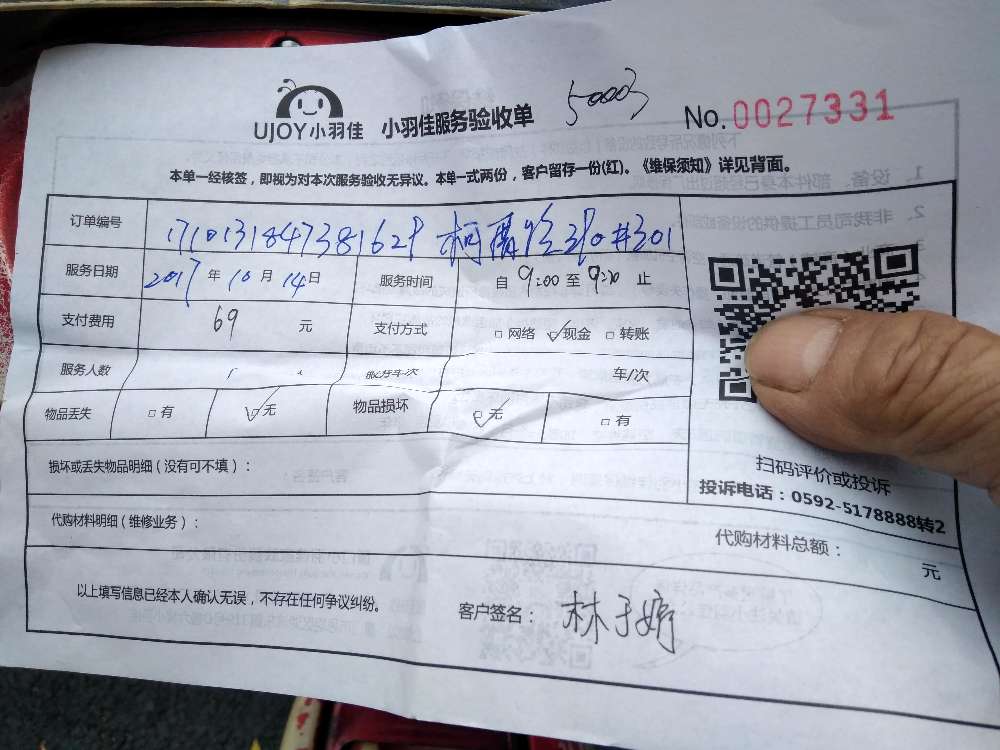 UJOY小羽佳 小羽佳服务验收单 No.0027331
本单一经核签，即视为对本次服务验收无异议。本单一式两份，客户留存一份(红)。《维保须知》详见背面。
订单编号
服务日期 2017年10月14日 服务时间 自9:00至9:20止
支付费用 69 元 支付方式 □网络 ☑现金 □转账
服务人数 服务车次 车/次
物品丢失 □有 ☑无 物品损坏 ☑无 □有
损坏或丢失物品明细（没有可不填）：
扫码评价或投诉
投诉电话：0592-5178888转2
代购材料明细（维修业务）： 代购材料总额： 元
以上填写信息已经本人确认无误，不存在任何争议纠纷。 客户签名：林于婷